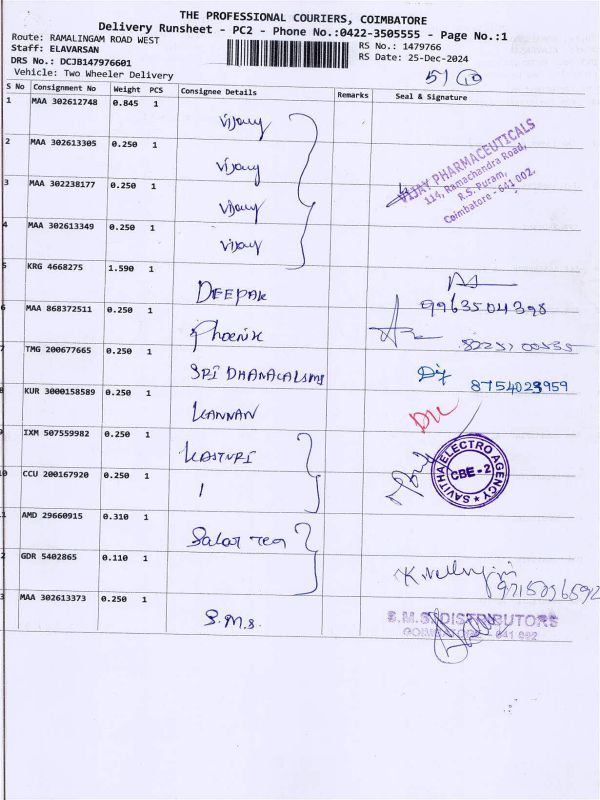 THE PROFESSIONAL COURIERS, COIMBATORE
Delivery Runsheet - PC2 - Phone No.:0422-3505555 - Page No.:1
Route: RAMALINGAM ROAD WEST
RS No.: 1479766
Staff: ELAVARSAN
RS Date: 25-Dec-2024
DRS No.: DCJB147976601
Vehicle: Two Wheeler Delivery
51 10
S No Consignment No Weight PCS Consignee Details Remarks Seal & Signature
1 MAA 302612748 0.845 1 Vijay
2 MAA 302613305 0.250 1 Vijay
3 MAA 302238177 0.250 1 Vijay
VIJAY PHARMACEUTICALS
114, Ramachandra Road,
R.S. Puram,
Coimbatore - 641 002.
4 MAA 302613349 0.250 1 Vijay
5 KRG 4668275 1.590 1 DEEPAK
9963504398
6 MAA 868372511 0.250 1 Phoenix
7 TMG 200677665 0.250 1 SRI DHANALAKSMI
8754023959
8 KUR 3000158589 0.250 1 KANNAN
9 IXM 507559982 0.250 1 KASTURI
SAVITHA ELECTRO AGENCY
CBE - 2
10 CCU 200167920 0.250 1
11 AMD 29660915 0.310 1
2 GDR 5402865 0.110 1
3 MAA 302613373 0.250 1 S.M.S.
S.M.S. DISTRIBUTORS
COIMBATORE - 641 002